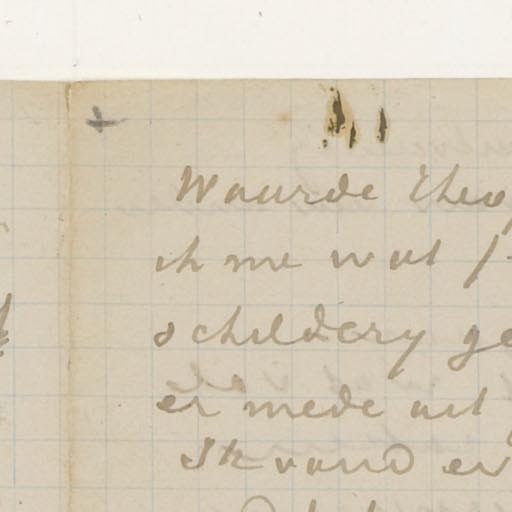 Waarde Theo,
ik me wat
schildery ge
er mede uit
Ik vond er